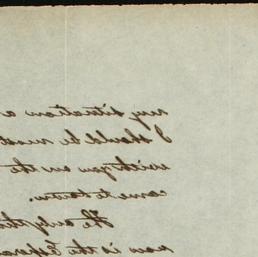 my situation a
I should be most
with you on the
come to town.
The only
now is the